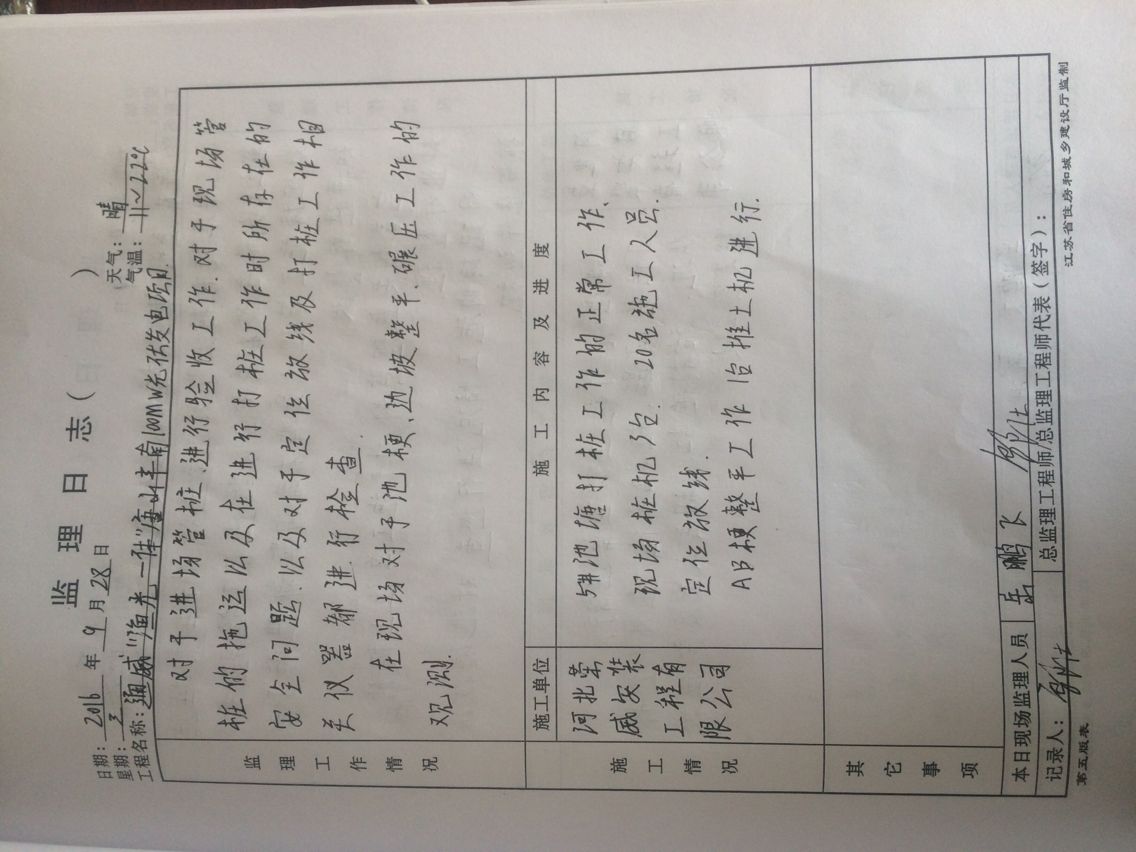 监理日志( )
日期: 2016 年 9 月 28 日
天气: 晴
星期: 三
气温: 11~22℃
工程名称: 通威"渔光一体"唐山丰南100MW光伏发电项目
监理工作情况
对于进场管桩、进行验收工作.对于现场管
桩的拖运以及在进行打桩工作时所存在的
安全问题.以及对于定位放线及打桩工作相
关仪器都进行检查.
在现场对于池梗、边坡整平、碾压工作的
观测.
施工情况
施工单位
施工内容及进度
河北荣
威安装
工程有
限公司
5#池塘打桩工作的正常工作、
现场桩机7台. 20名施工人员.
定位放线.
AB梗整平工作 1台推土机进行.
其它事项
本日现场监理人员 岳鹏飞
记录人:
总监理工程师/总监理工程师代表(签字):
第五版表
江苏省住房和城乡建设厅监制